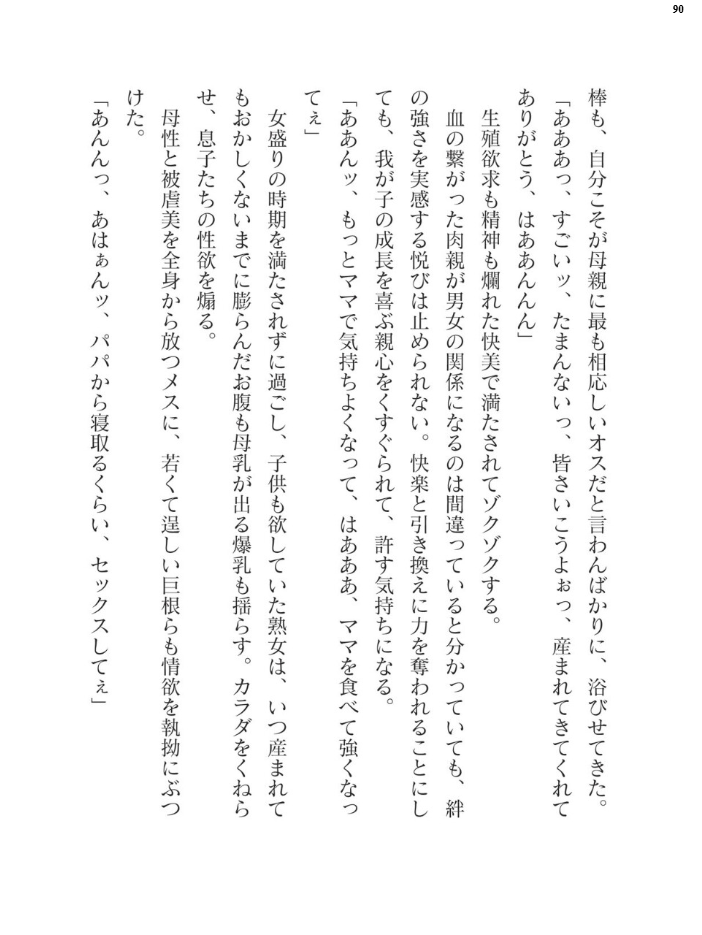 90
棒も、自分こそが母親に最も相応しいオスだと言わんばかりに、浴びせてきた。
「あああっ、すごいッ、たまんないっ、皆さいこうよぉっ、産まれてきてくれて
ありがとう、はああんんん」
生殖欲求も精神も爛れた快美で満たされてゾクゾクする。
血の繋がった肉親が男女の関係になるのは間違っていると分かっていても、絆
の強さを実感する悦びは止められない。快楽と引き換えに力を奪われることにし
ても、我が子の成長を喜ぶ親心をくすぐられて、許す気持ちになる。
「ああんッ、もっとママで気持ちよくなって、はあああ、ママを食べて強くなっ
てぇ」
女盛りの時期を満たされずに過ごし、子供も欲していた熟女は、いつ産まれて
もおかしくないまでに膨らんだお腹も母乳が出る爆乳も揺らす。カラダをくねら
せ、息子たちの性欲を煽る。
母性と被虐美を全身から放つメスに、若くて逞しい巨根らも情欲を執拗にぶつ
けた。
「あんんっ、あはぁんッ、パパから寝取るくらい、セックスしてぇ」